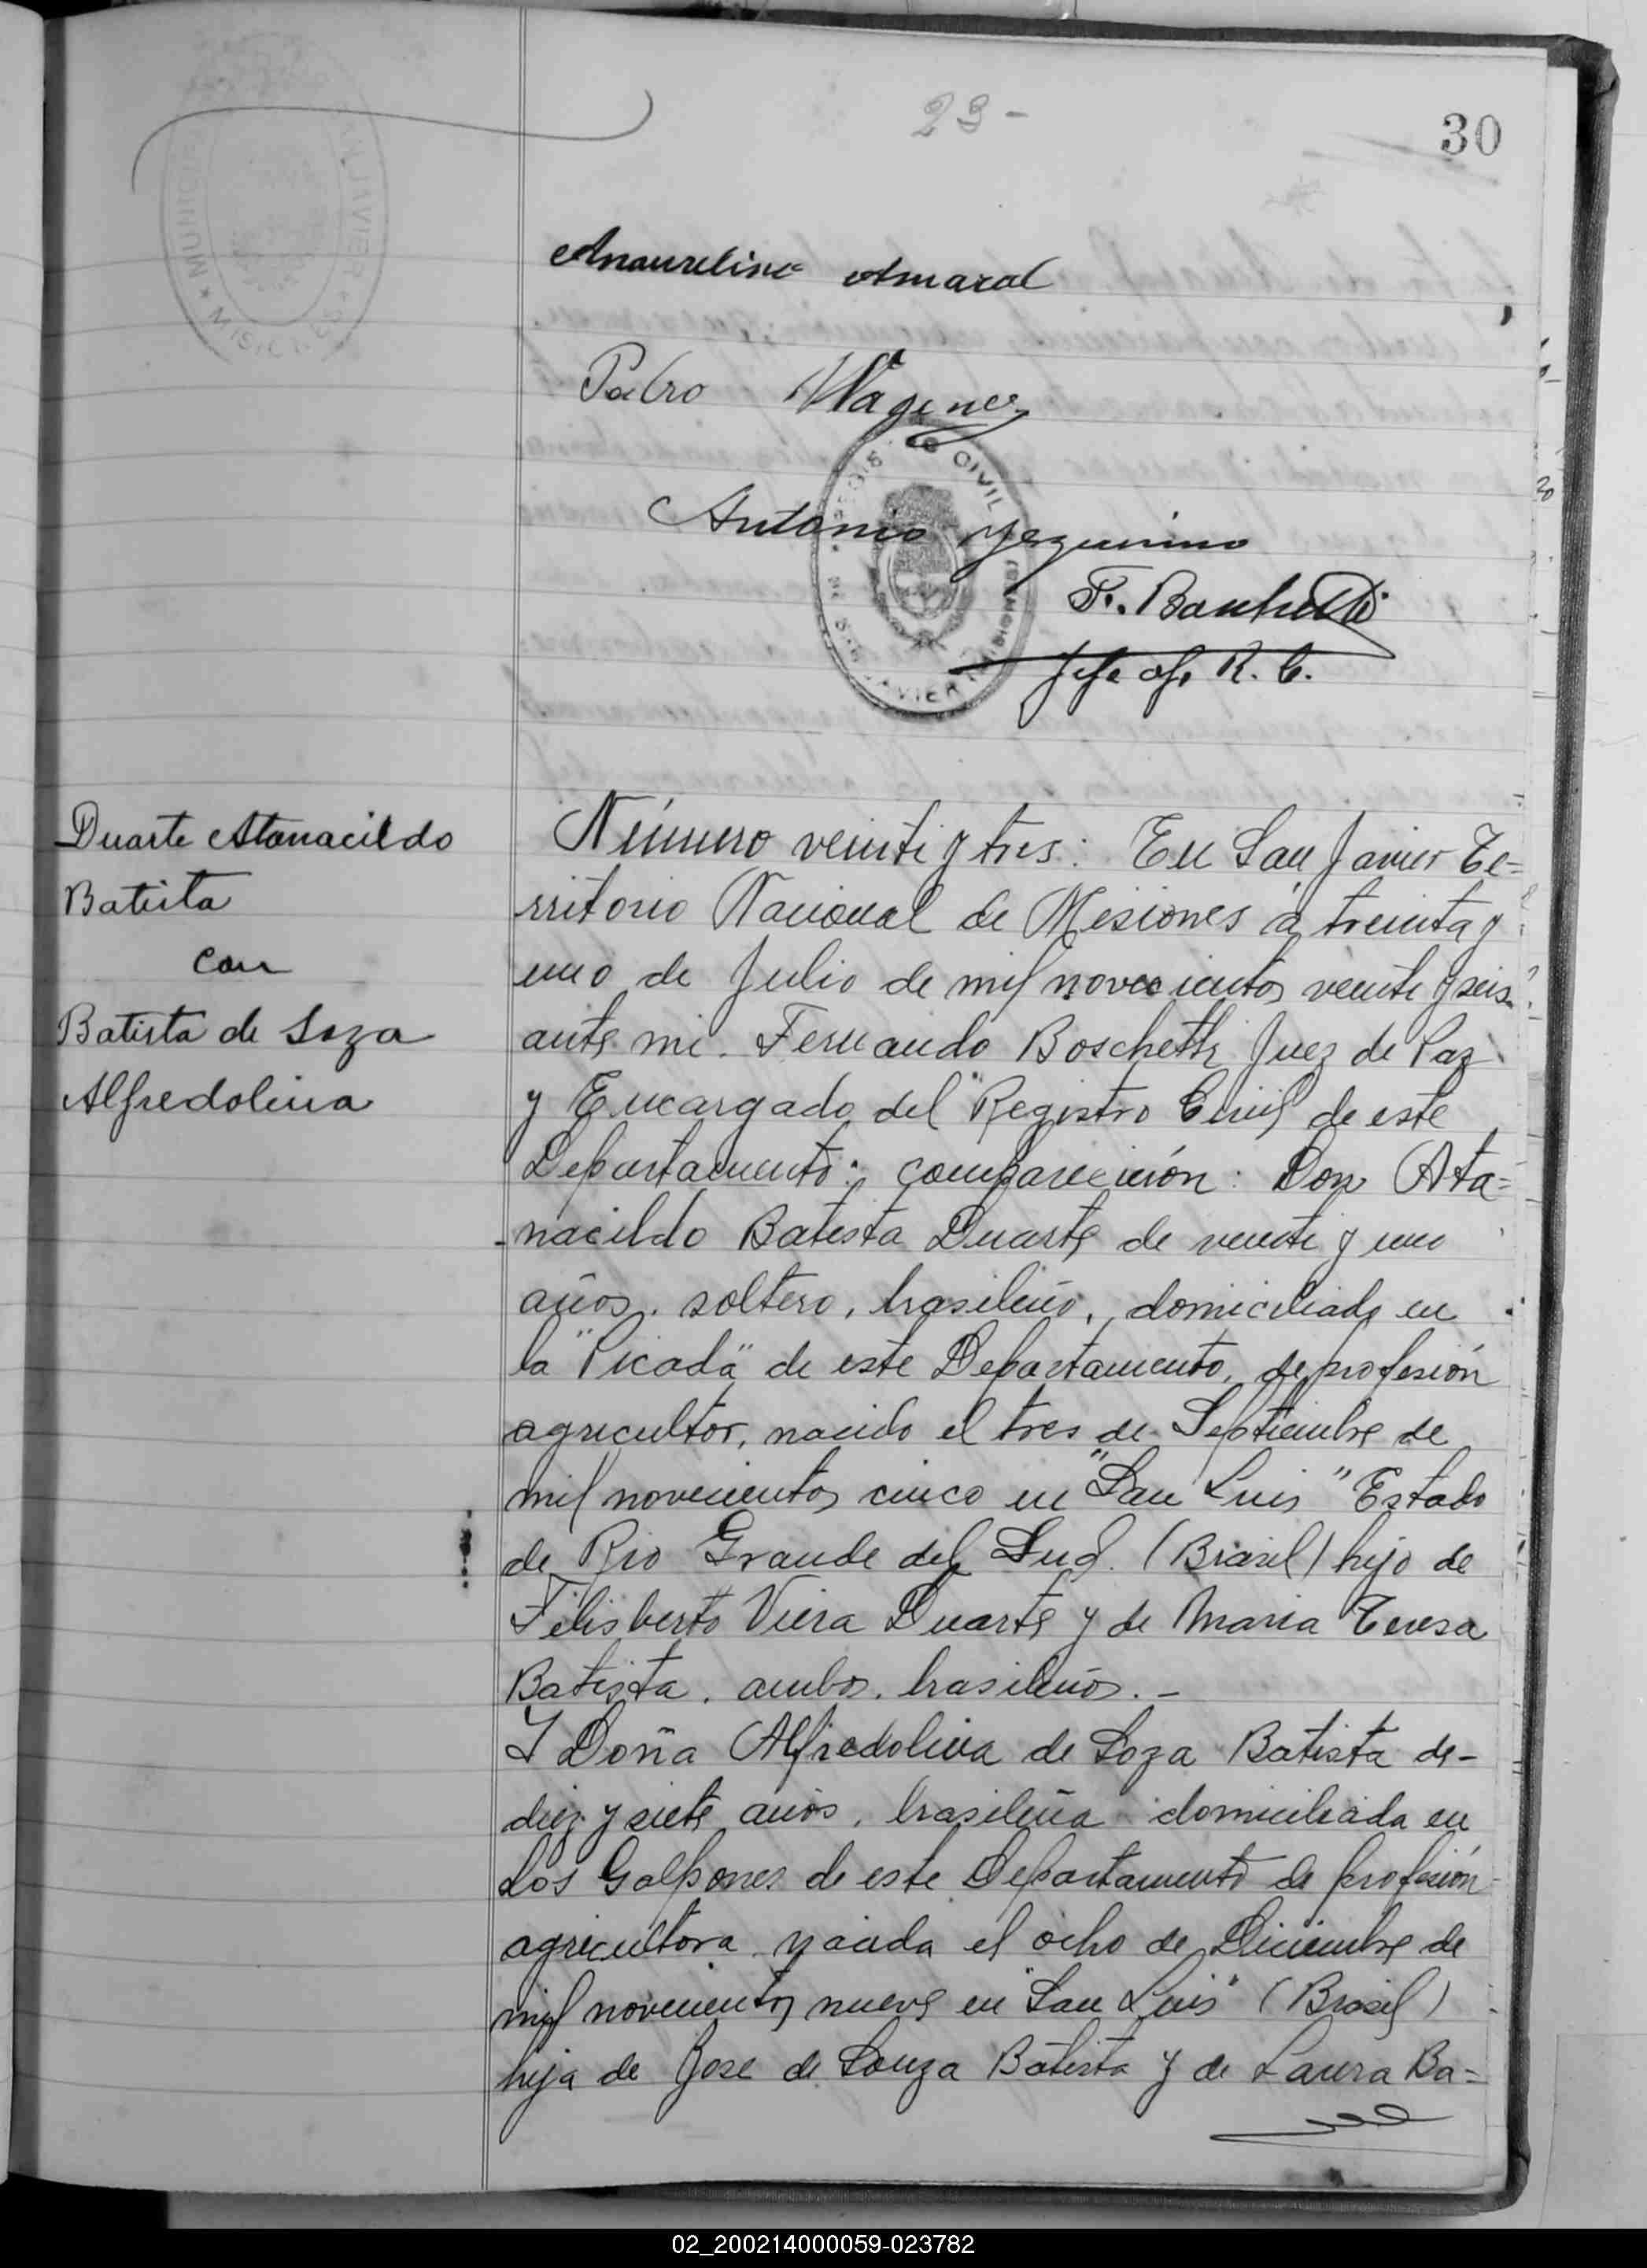 23-
30
Anaurelino Amaral
Pedro Wagener
Antonio Yerguinino
F. Boschetti
Jefe of. R. C.
Duarte Atanacildo
Batista
con
Batista de Soza
Alfredolina
Número veinti y tres: En San Javier Te=
rritorio Nacional de Misiones á treinta y
uno de Julio de mil novecientos veinte y seis
ante mi. Fernando Boschetti Juez de Paz
y Encargado del Registro Civil de este
Departamento: comparecieron: Don Ata=
nacildo Batista Duarte de veinte y uno
años. soltero, brasileño, domiciliado en
la "Picada" de este Departamento, de profesión
agricultor, nacido el tres de Septiembre de
mil novecientos cinco en "San Luis" Estado
de Rio Grande del Sud. (Brasil) hijo de
Felisberto Viera Duarte y de Maria Teresa
Batista. ambos. brasileños.-
Y Doña Alfredolina de Soza Batista de-
diez y siete años, brasileña domiciliada en
Los Galpones de este Departamento de profesión
agricultora nacida el ocho de Diciembre de
mil novecientos nueve en "San Luis" (Brasil)
hija de Jose de Souza Batista y de Laura Ba=
02_200214000059-023782